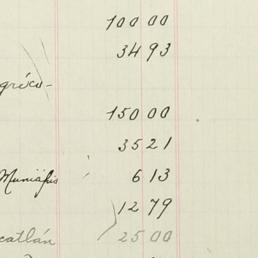 100 00
34 93
grico-
150 00
35 21
6 13
12 79
catlán 25 00